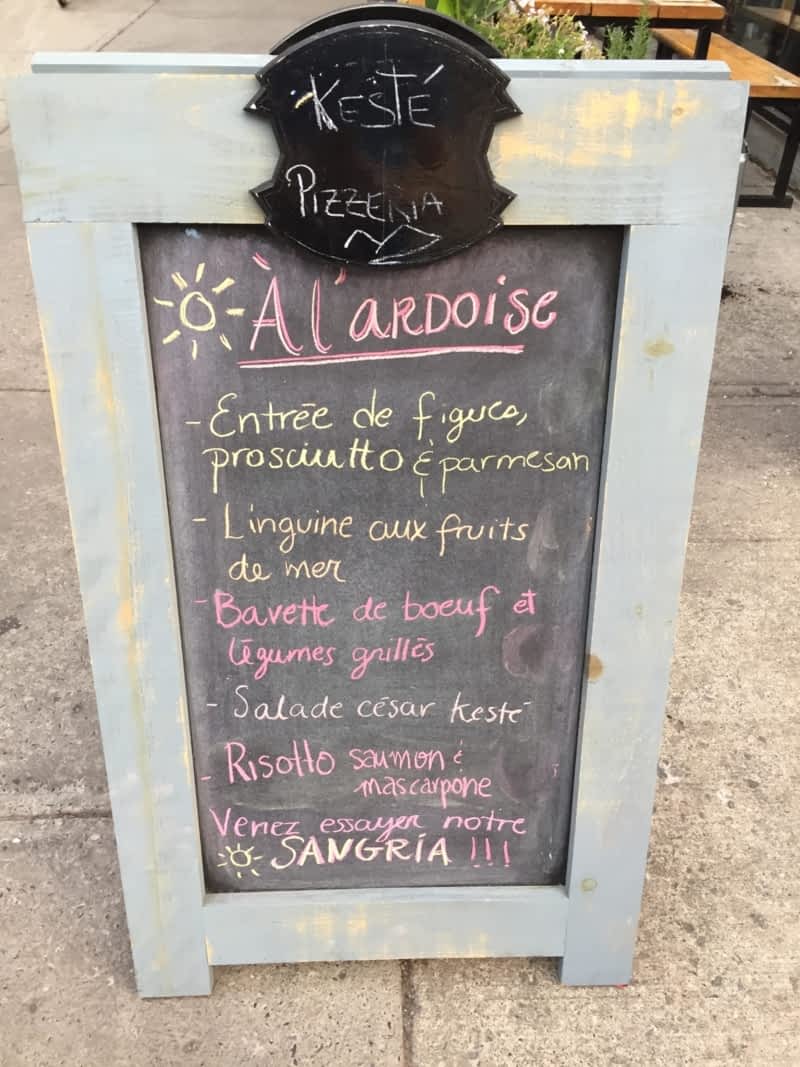 KESTÉ
PIZZERIA
À l'ARDOISE
- Entrée de figues,
prosciutto & parmesan
- Linguine aux fruits
de mer
- Bavette de boeuf et
légumes grillés
- Salade césar Kesté
- Risotto saumon &
mascarpone
Venez essayer notre
SANGRÍA !!!